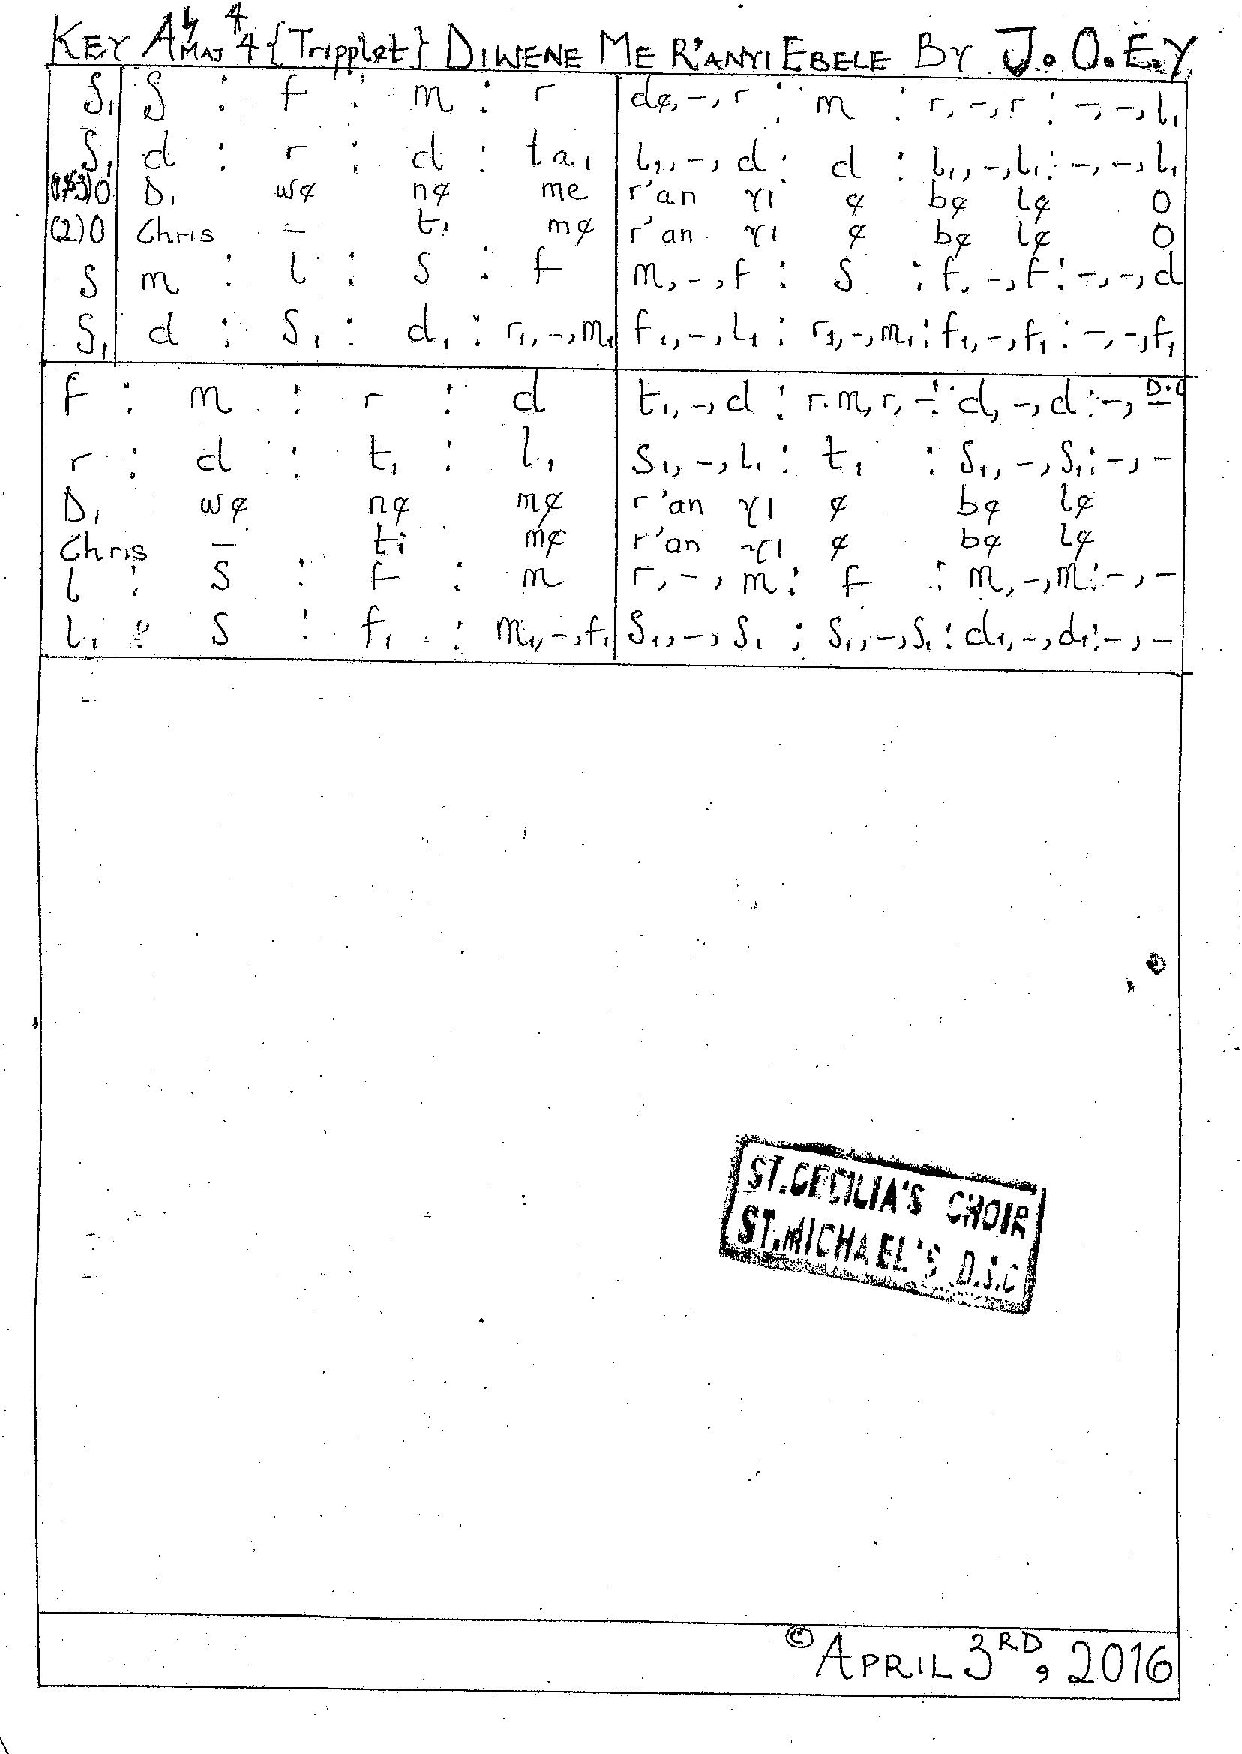 KEY A♭ MAJ 4/4 {Tripplet} DIWENE ME R'ANYI EBELE BY J.O.E.Y
S₁ S : f : m : r de,-,r : m : r,-,r : -,-,l₁
S₁ d : r : d : ta₁ l₁,-,d : d : l₁,-,l₁ : -,-,l₁
(1&3)O Dị wẹ nẹ me r'an yi ẹ bẹ lẹ O
(2)O Chris - ti mẹ r'an yi ẹ bẹ lẹ O
S m : l : S : f m,-,f : S : f,-,f : -,-,d
S₁ d : S₁ : d₁ : r₁,-,m₁ f₁,-,l₁ : r₁,-,m₁ : f₁,-,f₁ : -,-,f₁
f : m : r : d t₁,-,d : r.m,r,- : d,-,d : -,- D.C
r : d : t₁ : l₁ S₁,-,l₁ : t₁ : S₁,-,S₁ : -,-
Dị wẹ nẹ mẹ r'an yi ẹ bẹ lẹ
Chris - ti mẹ r'an yi ẹ bẹ lẹ
l : S : f : m r,-,m : f : m,-,m : -,-
l₁ : S : f₁ : m₁,-,f₁ S₁,-,S₁ : S₁,-,S₁ : d₁,-,d₁ : -,-
ST.CECILIA'S CHOIR
ST.MICHAEL'S D.S.C
© APRIL 3RD, 2016